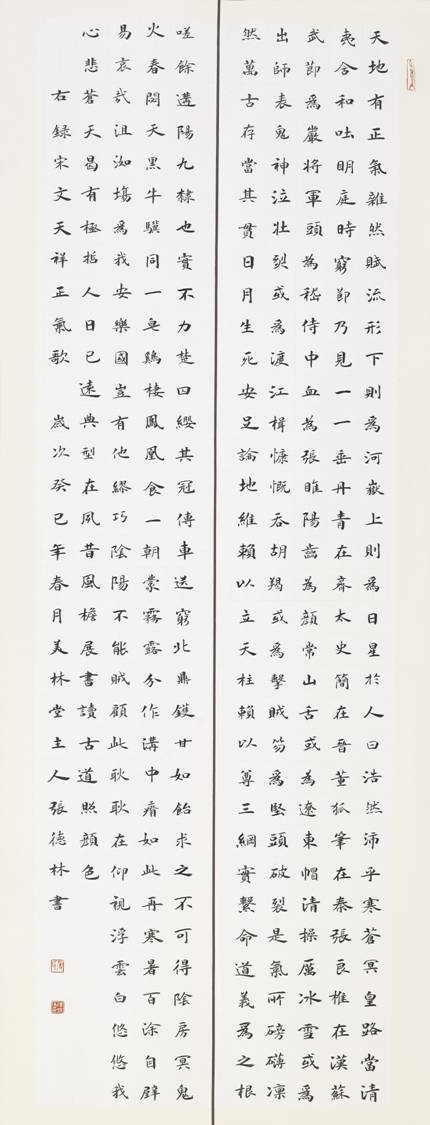 天地有正氣雜然賦流形下則為河嶽上則為日星於人曰浩然沛乎塞蒼冥皇路當清
夷含和吐明庭時窮節乃見一一垂丹青在齊太史簡在晉董狐筆在秦張良椎在漢蘇
武節為嚴將軍頭為嵇侍中血為張睢陽齒為顏常山舌或為遼東帽清操厲冰雪或為
出師表鬼神泣壯烈或為渡江楫慷慨吞胡羯或為擊賊笏豎頭破裂是氣所磅礴凜
然萬古存當其貫日月生死安足論地維賴以立天柱賴以尊三綱實繫命道義為之根
嗟餘遘陽九隸也實不力楚囚纓其冠傳車送窮北鼎鑊甘如飴求之不可得陰房冥鬼
火春閟天黑牛驥同一皂鷄棲鳳凰食一朝蒙霧露分作溝中瘠如此再寒暑百沴自辟
易哀哉沮洳場為我安樂國豈有他繆巧陰陽不能賊顧此耿耿在仰視浮雲白悠悠我
心悲蒼天曷有極哲人日已遠典型在夙昔風檐展書讀古道照顏色
右錄宋文天祥正氣歌 歲次癸巳年春月美林堂主人張德林書